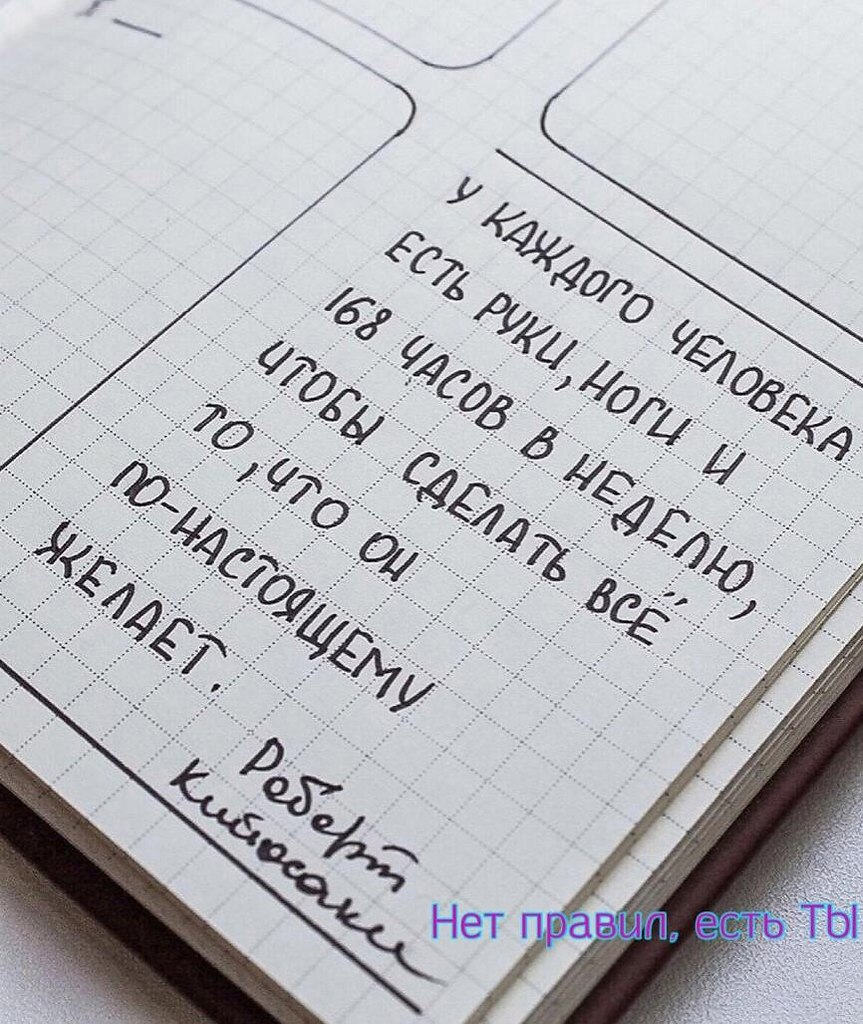 У КАЖДОГО ЧЕЛОВЕКА
ЕСТЬ РУКИ, НОГИ И
168 ЧАСОВ В НЕДЕЛЮ,
ЧТОБЫ СДЕЛАТЬ ВСЁ
ТО, ЧТО ОН
ПО-НАСТОЯЩЕМУ
ЖЕЛАЕТ.
Роберт
Кийосаки
Нет правил, есть ТЫ